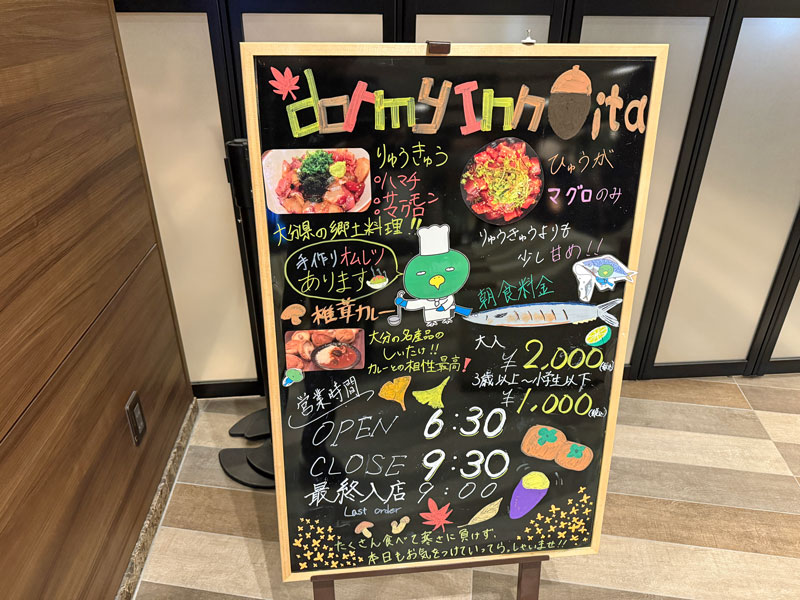 dormy Inn Oita
りゅうきゅう
○ハマチ
○サーモン
○マグロ
大分県の郷土料理!!
ひゅうが
マグロのみ
りゅうきゅうよりも
少し甘め!!
手作りオムレツ
あります
椎茸カレー
大分の名産品の
しいたけ!!
カレーとの相性最高!
朝食料金
大人
¥2,000(税込)
3歳以上〜小学生以下
¥1,000(税込)
営業時間
OPEN 6:30
CLOSE 9:30
最終入店 9:00
Last order
たくさん食べて寒さに負けず、
本日もお気をつけていってらっしゃいませ!!